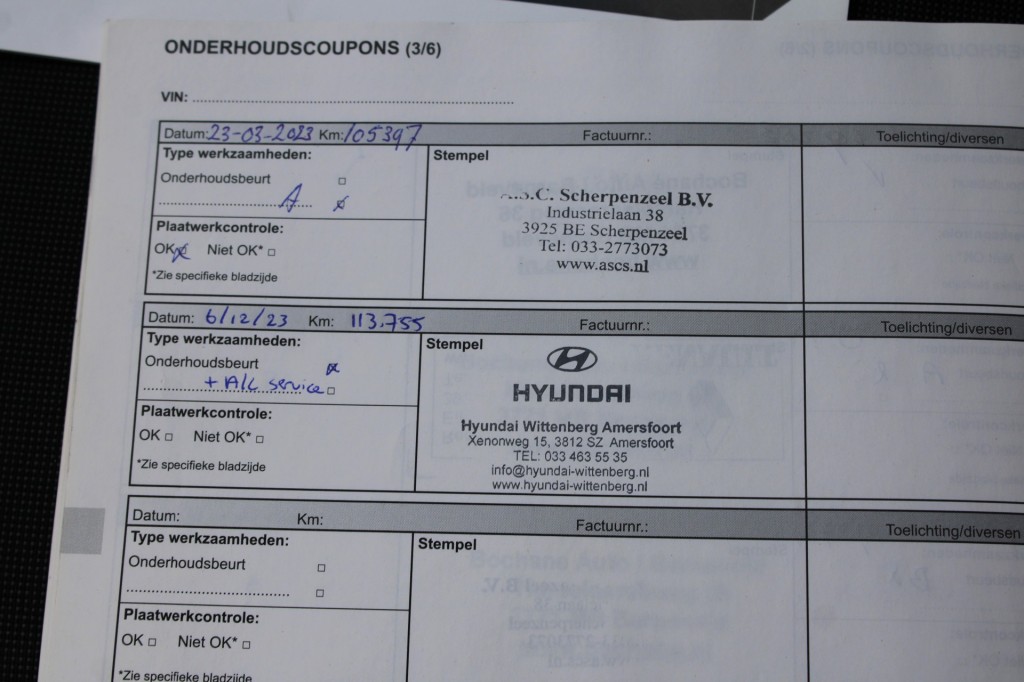 ONDERHOUDSCOUPONS (3/6)
VIN: ........................................................................
Datum: 23-03-2023 Km: 105397 Factuurnr.: Toelichting/diversen
Type werkzaamheden:
Stempel
Onderhoudsbeurt
A
Plaatwerkcontrole:
OK Niet OK*
*Zie specifieke bladzijde
A.S.C. Scherpenzeel B.V.
Industrielaan 38
3925 BE Scherpenzeel
Tel: 033-2773073
www.ascs.nl
Datum: 6/12/23 Km: 113.755 Factuurnr.: Toelichting/diversen
Type werkzaamheden:
Stempel
Onderhoudsbeurt
+ A/C service
Plaatwerkcontrole:
OK Niet OK*
*Zie specifieke bladzijde
HYUNDAI
Hyundai Wittenberg Amersfoort
Xenonweg 15, 3812 SZ Amersfoort
TEL: 033 463 55 35
info@hyundai-wittenberg.nl
www.hyundai-wittenberg.nl
Datum: Km: Factuurnr.: Toelichting/diversen
Type werkzaamheden:
Stempel
Onderhoudsbeurt
Plaatwerkcontrole:
OK Niet OK*
*Zie specifieke bladzijde